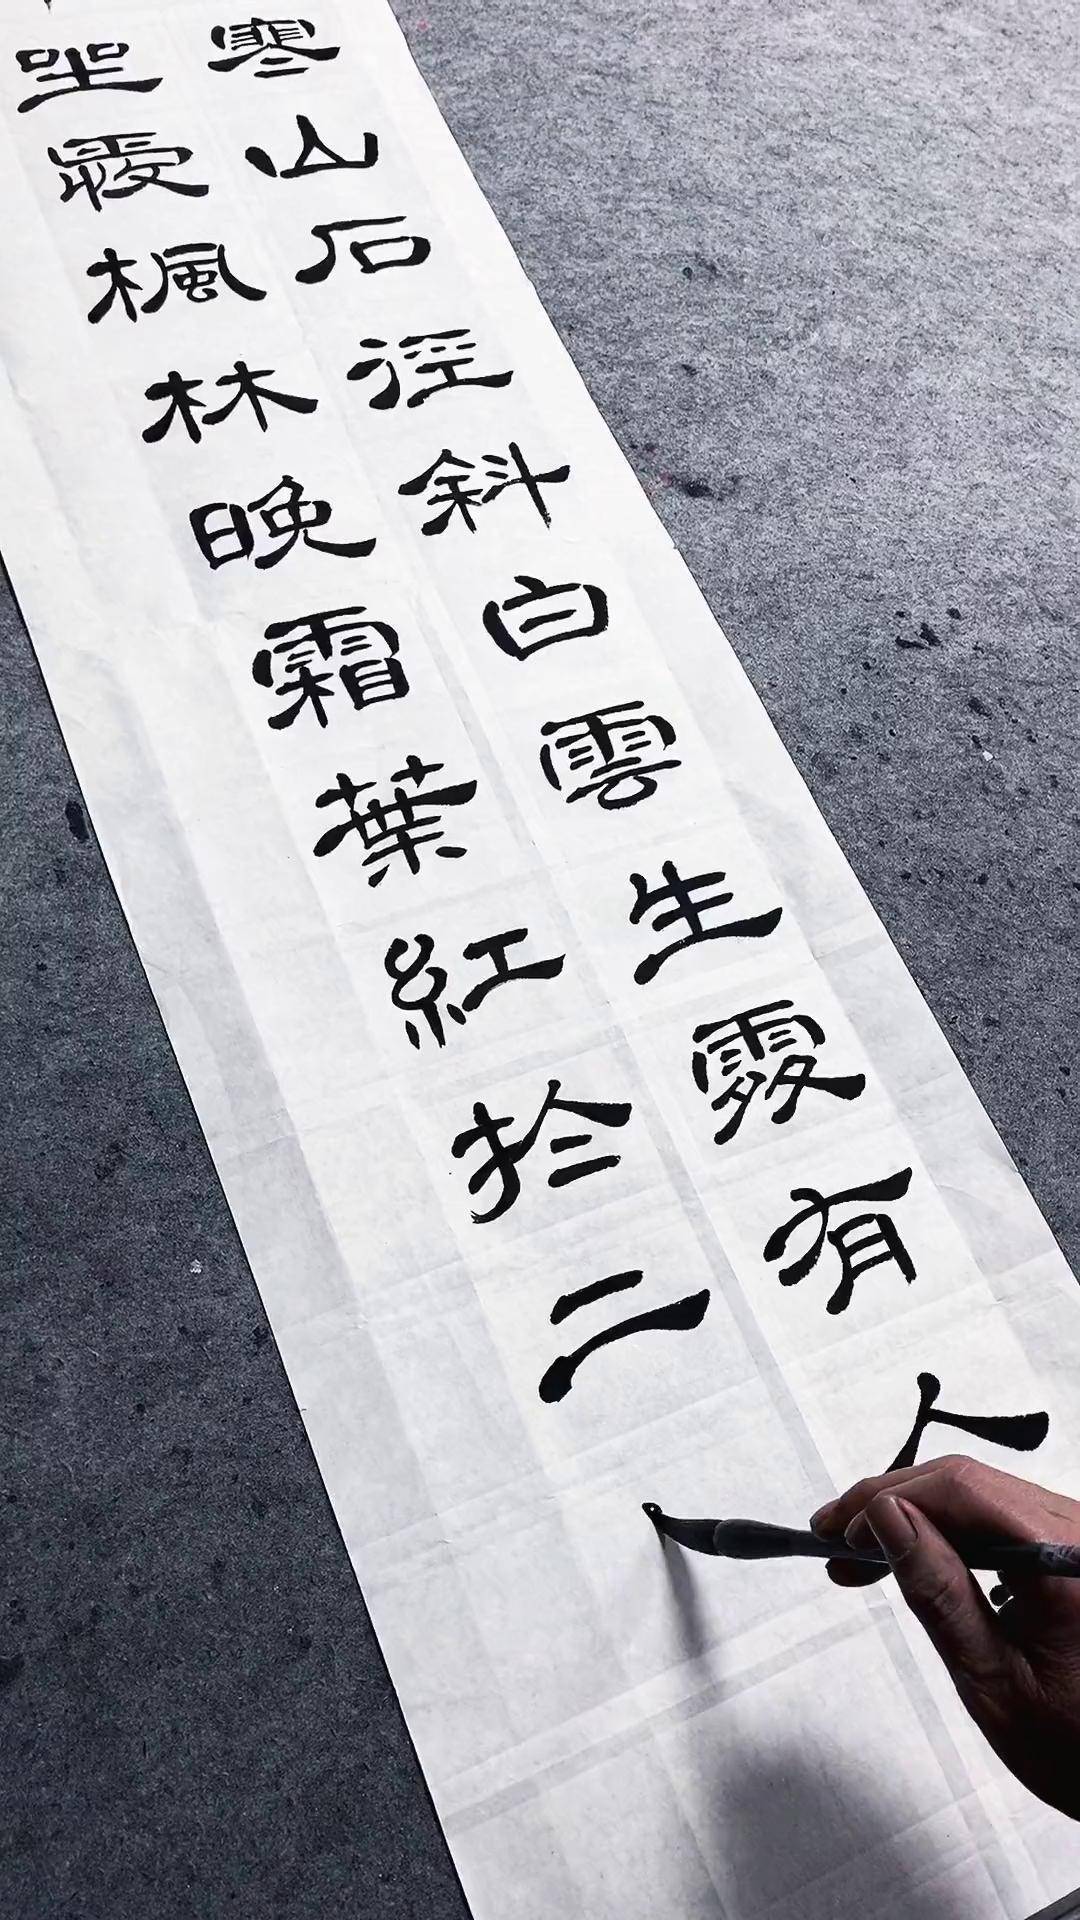 寒山石徑斜白雲生處有人
坐愛楓林晚霜葉紅於二